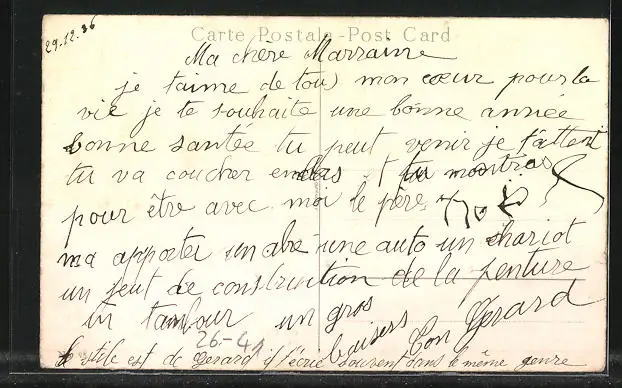 29.12.36
Carte Postale - Post Card
Ma chère Marraine
je t'aime de tou) mon cœur pour la
vie je te souhaite une bonne année
bonne santée tu peut venir je t'attent
tu va coucher en bas et tu montras
pour être avec moi le père
ma apporter un abre une auto un chariot
un jeut de construction de la penture
un tambour un gros
baisers ton Gerard
26-41
Le style est de Gerard il écrie souvent dans le même genre